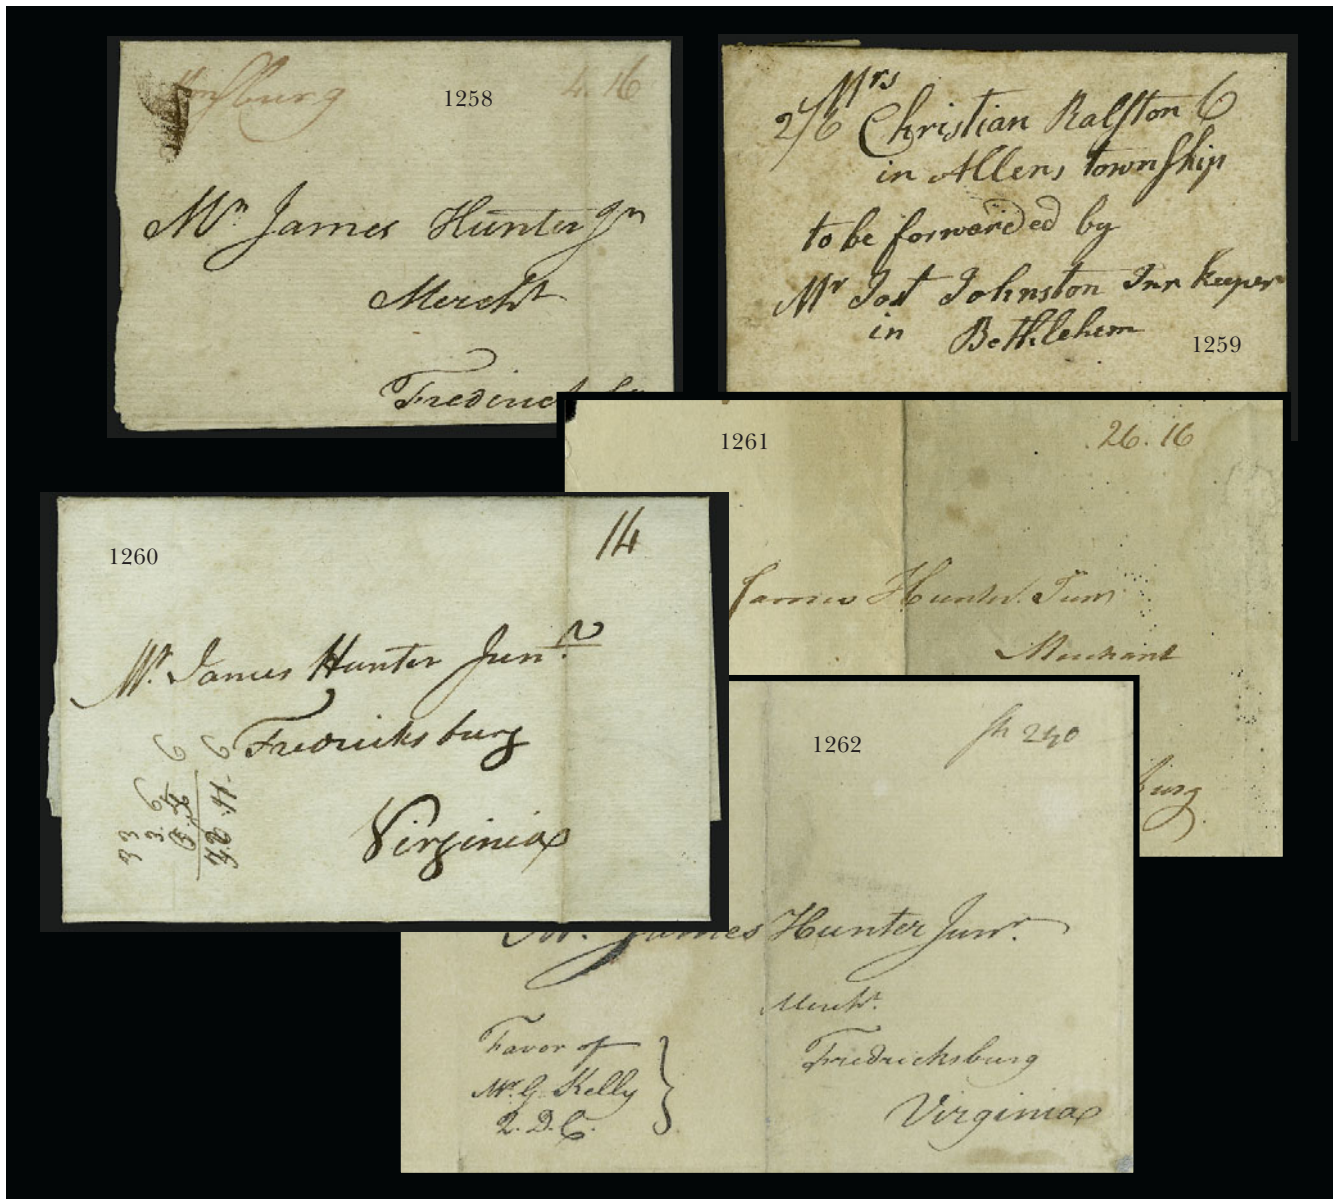 1258
4. 16
Mr James Hunter Jn
Mercht
1259
Mrs
2/6 Christian Ralston 6
in Allens township
to be forwarded by
Mr Jost Johnston Inn keeper
in Bethlehem
1261
26. 16
James Hunter Junr
Merchant
burg
1260
14
Mr. James Hunter Junr
Fredricksburg
Virginia
1262
240
Mr. James Hunter Junr.
Mercht.
Fredricksburg
Virginia
Favor of
Mr. G. Kelly
Q. D. C.